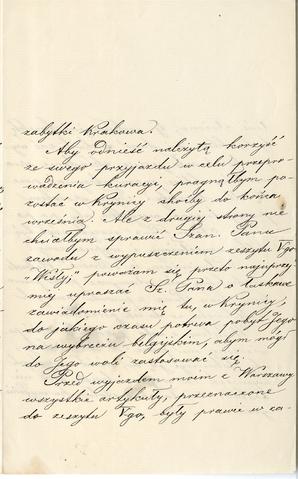 zabytki Krakowa.
Aby odnieść należytą korzyść
ze swego przyjazdu w celu przepro-
wadzenia kuracyi, pragnąłbym po-
zostać w Krynicy choćby do końca
września. Ale z drugiej strony nie
chciałbym sprawić Szan. Panu
zawodu z wypuszczeniem zeszytu Vgo
"Wisły," poważam się przeto najuprzej-
miej upraszać Sz. Pana o łaskawe
zawiadomienie mię tu, w Krynicy,
do jakiego czasu potrwa pobyt Jego
na wybrzeżu belgijskim, abym mógł
do Jego woli zastosować się.
Przed wyjazdem moim z Warszawy
wszystkie artykuły, przeznaczone
do zeszytu Vgo, były prawie w ca-